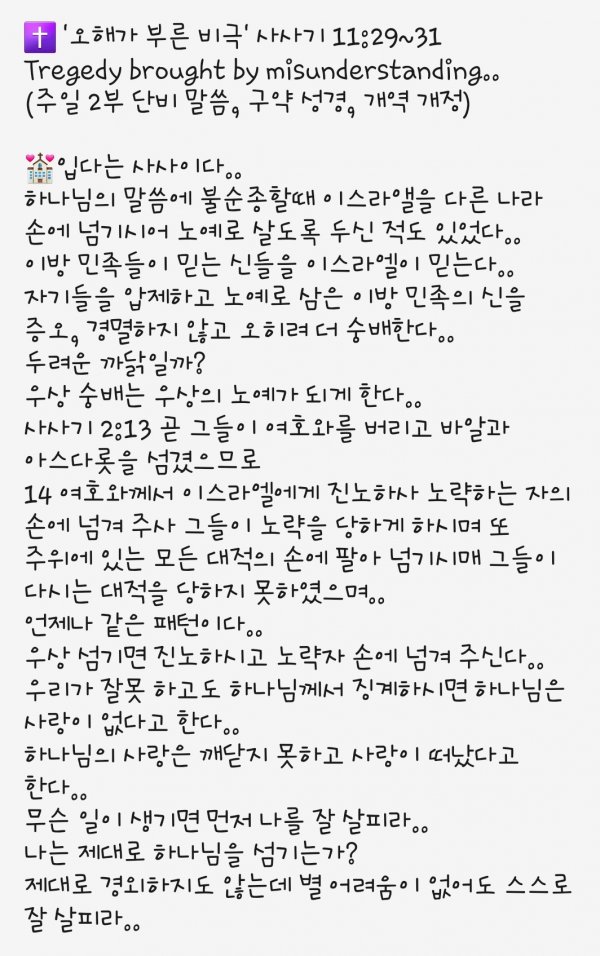 ✝️ '오해가 부른 비극' 사사기 11:29~31
Tregedy brought by misunderstanding..
(주일 2부 단비 말씀, 구약 성경, 개역 개정)
💒입다는 사사이다..
하나님의 말씀에 불순종할때 이스라앨을 다른 나라
손에 넘기시어 노예로 살도록 두신 적도 있었다..
이방 민족들이 믿는 신들을 이스라엘이 믿는다..
자기들을 압제하고 노예로 삼은 이방 민족의 신을
증오, 경멸하지 않고 오히려 더 숭배한다..
두려운 까닭일까?
우상 숭배는 우상의 노예가 되게 한다..
사사기 2:13 곧 그들이 여호와를 버리고 바알과
아스다롯을 섬겼으므로
14 여호와께서 이스라엘에게 진노하사 노략하는 자의
손에 넘겨 주사 그들이 노략을 당하게 하시며 또
주위에 있는 모든 대적의 손에 팔아 넘기시매 그들이
다시는 대적을 당하지 못하였으며..
언제나 같은 패턴이다..
우상 섬기면 진노하시고 노략자 손에 넘겨 주신다..
우리가 잘못 하고도 하나님께서 징계하시면 하나님은
사랑이 없다고 한다..
하나님의 사랑은 깨닫지 못하고 사랑이 떠났다고
한다..
무슨 일이 생기면 먼저 나를 잘 살피라..
나는 제대로 하나님을 섬기는가?
제대로 경외하지도 않는데 별 어려움이 없어도 스스로
잘 살피라..